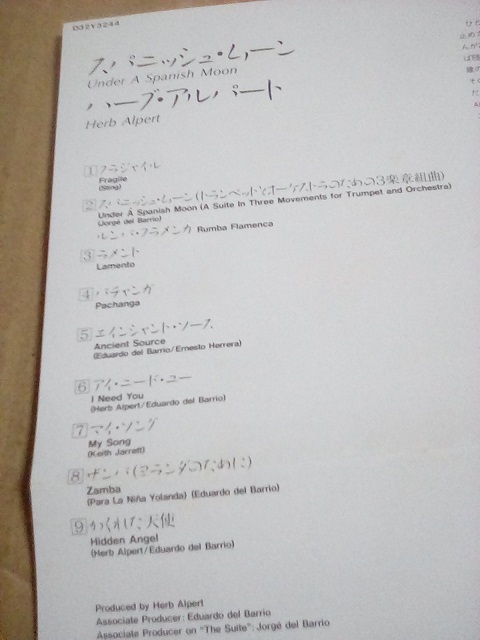 D32Y3244
スパニッシュ・ムーン
Under A Spanish Moon
ハーブ・アルパート
Herb Alpert
1 フラジャイル
Fragile
(Sting)
2 スパニッシュ・ムーン(トランペットとオーケストラのための3楽章組曲)
Under A Spanish Moon (A Suite In Three Movements for Trumpet and Orchestra)
(Jorgé del Barrio)
ルンバ・フラメンカ Rumba Flamenca
3 ラメント
Lamento
4 パチャンガ
Pachanga
5 エインシャント・ソース
Ancient Source
(Eduardo del Barrio/Ernesto Herrera)
6 アイ・ニード・ユー
I Need You
(Herb Alpert/Eduardo del Barrio)
7 マイ・ソング
My Song
(Keith Jarrett)
8 ザンバ(ヨランダのために)
Zamba
(Para La Niña Yolanda) (Eduardo del Barrio)
9 かくれた天使
Hidden Angel
(Herb Alpert/Eduardo del Barrio)
Produced by Herb Alpert
Associate Producer: Eduardo del Barrio
Associate Producer on "The Suite": Jorgé del Barrio